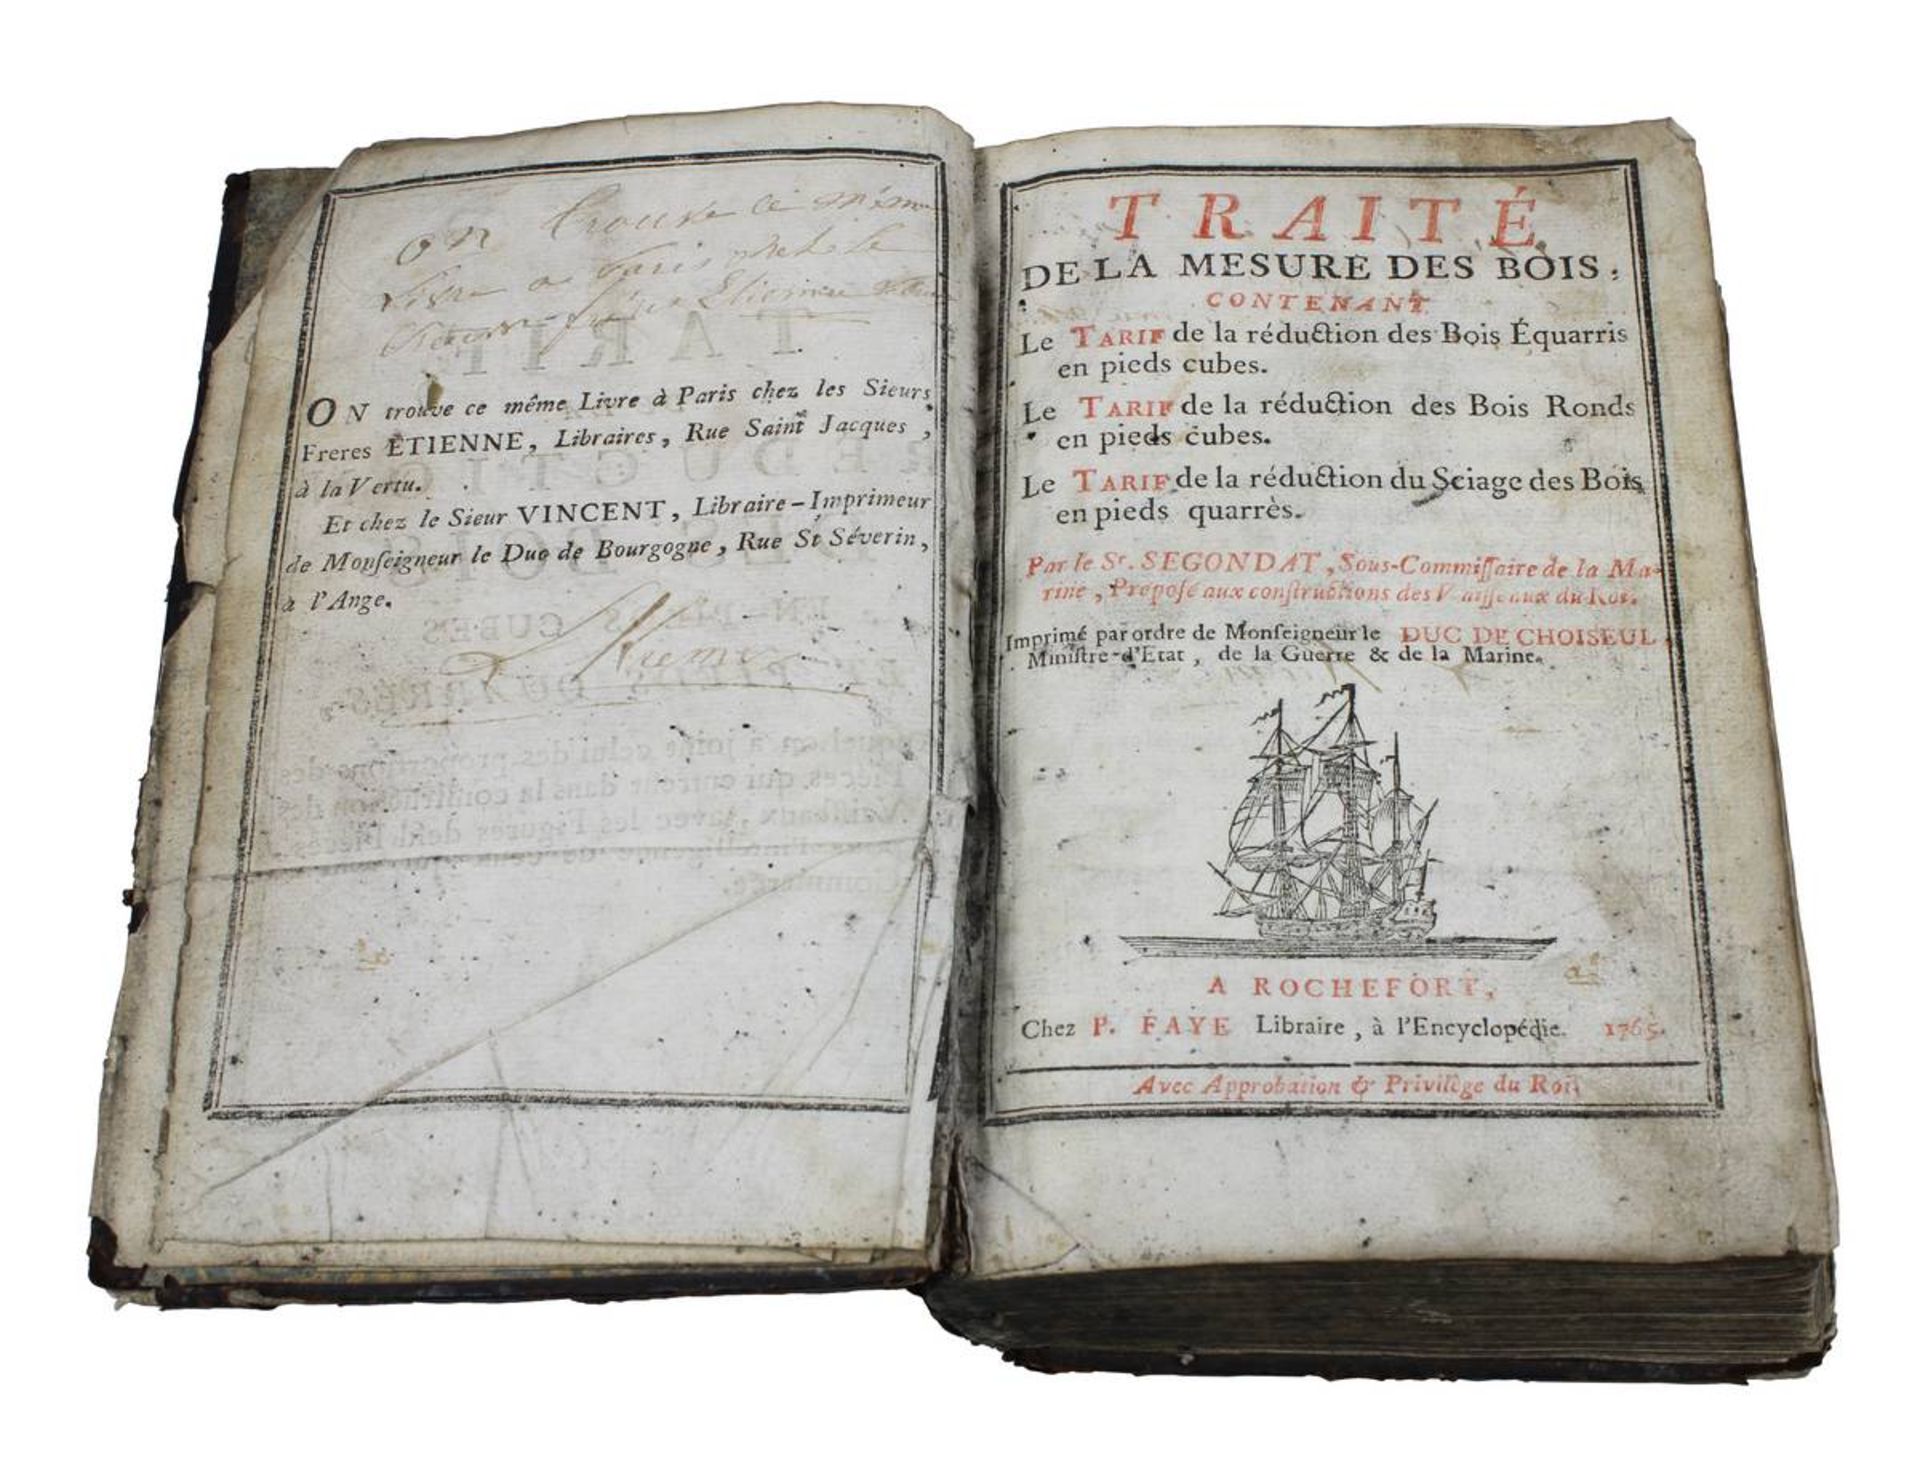 on trouve ce même
Livre a Paris chez le
On trouve ce même Livre à Paris chez les Sieurs
Freres ÉTIENNE, Libraires, Rue Saint Jacques,
à la Vertu.
Et chez le Sieur VINCENT, Libraire-Imprimeur
de Monseigneur le Duc de Bourgogne, Rue St Séverin,
à l'Ange.
TRAITÉ
DE LA MESURE DES BOIS,
CONTENANT
Le TARIF de la réduction des Bois Équarris
en pieds cubes.
Le TARIF de la réduction des Bois Ronds
en pieds cubes.
Le TARIF de la réduction du Sciage des Bois
en pieds quarrès.
Par le Sr. SEGONDAT, Sous-Commissaire de la Ma-
rine, Préposé aux constructions des Vaisseaux du Roi.
Imprimé par ordre de Monseigneur le DUC DE CHOISEUL,
Ministre-d'Etat, de la Guerre & de la Marine.
A ROCHEFORT,
Chez P. FAYE Libraire, à l'Encyclopédie. 1765.
Avec Approbation & Privilège du Roi.